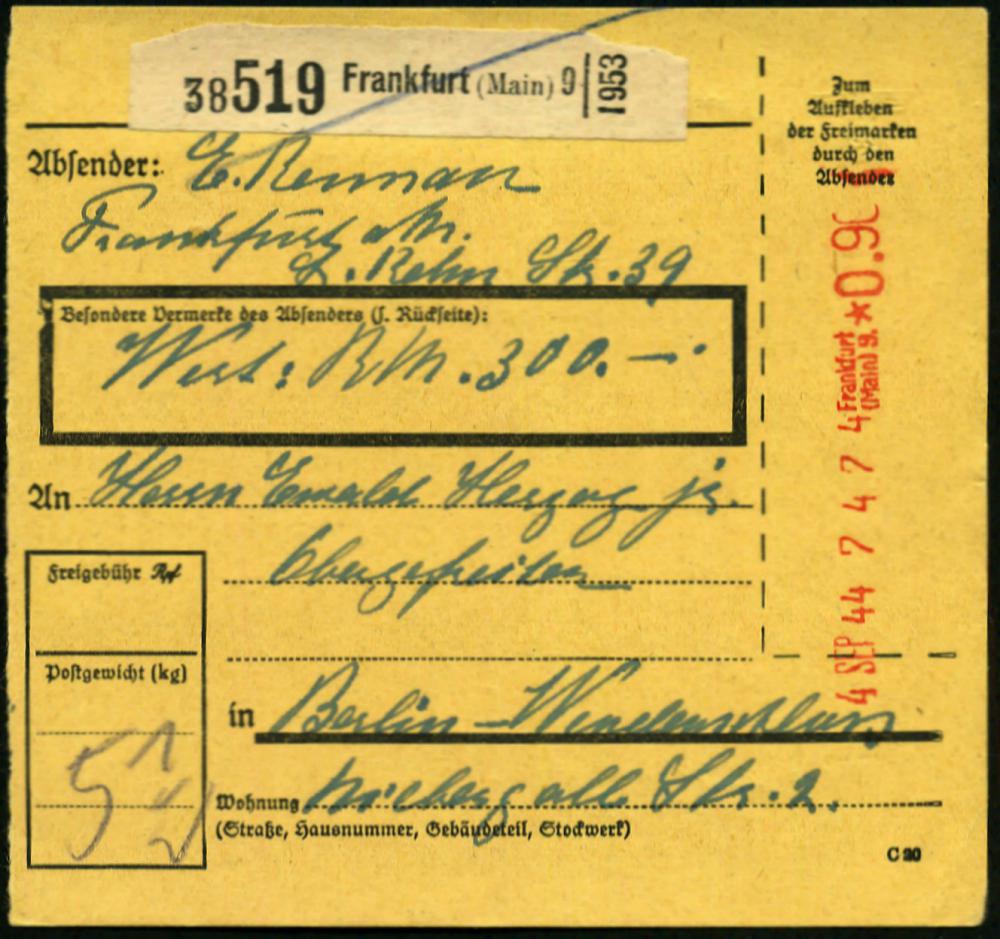 38519 Frankfurt (Main) 9 1953
Zum
Aufkleben
der Freimarken
durch den
Absender
Absender: E. Renman
Frankfurt a/M.
Str. 39
Besondere Vermerke des Absenders (s. Rückseite):
Wert: RM. 300.—.
An Herrn Ewald Herzog jr.
Obergefreiter
Freigebühr Rpf
Postgewicht (kg)
5 1/2
in Berlin - Wendenschloss
Wohnung Str. 2.
(Straße, Hausnummer, Gebäudeteil, Stockwerk)
C 20
4 SEP 44 7 4 7 4 Frankfurt (Main) 9. *0.90